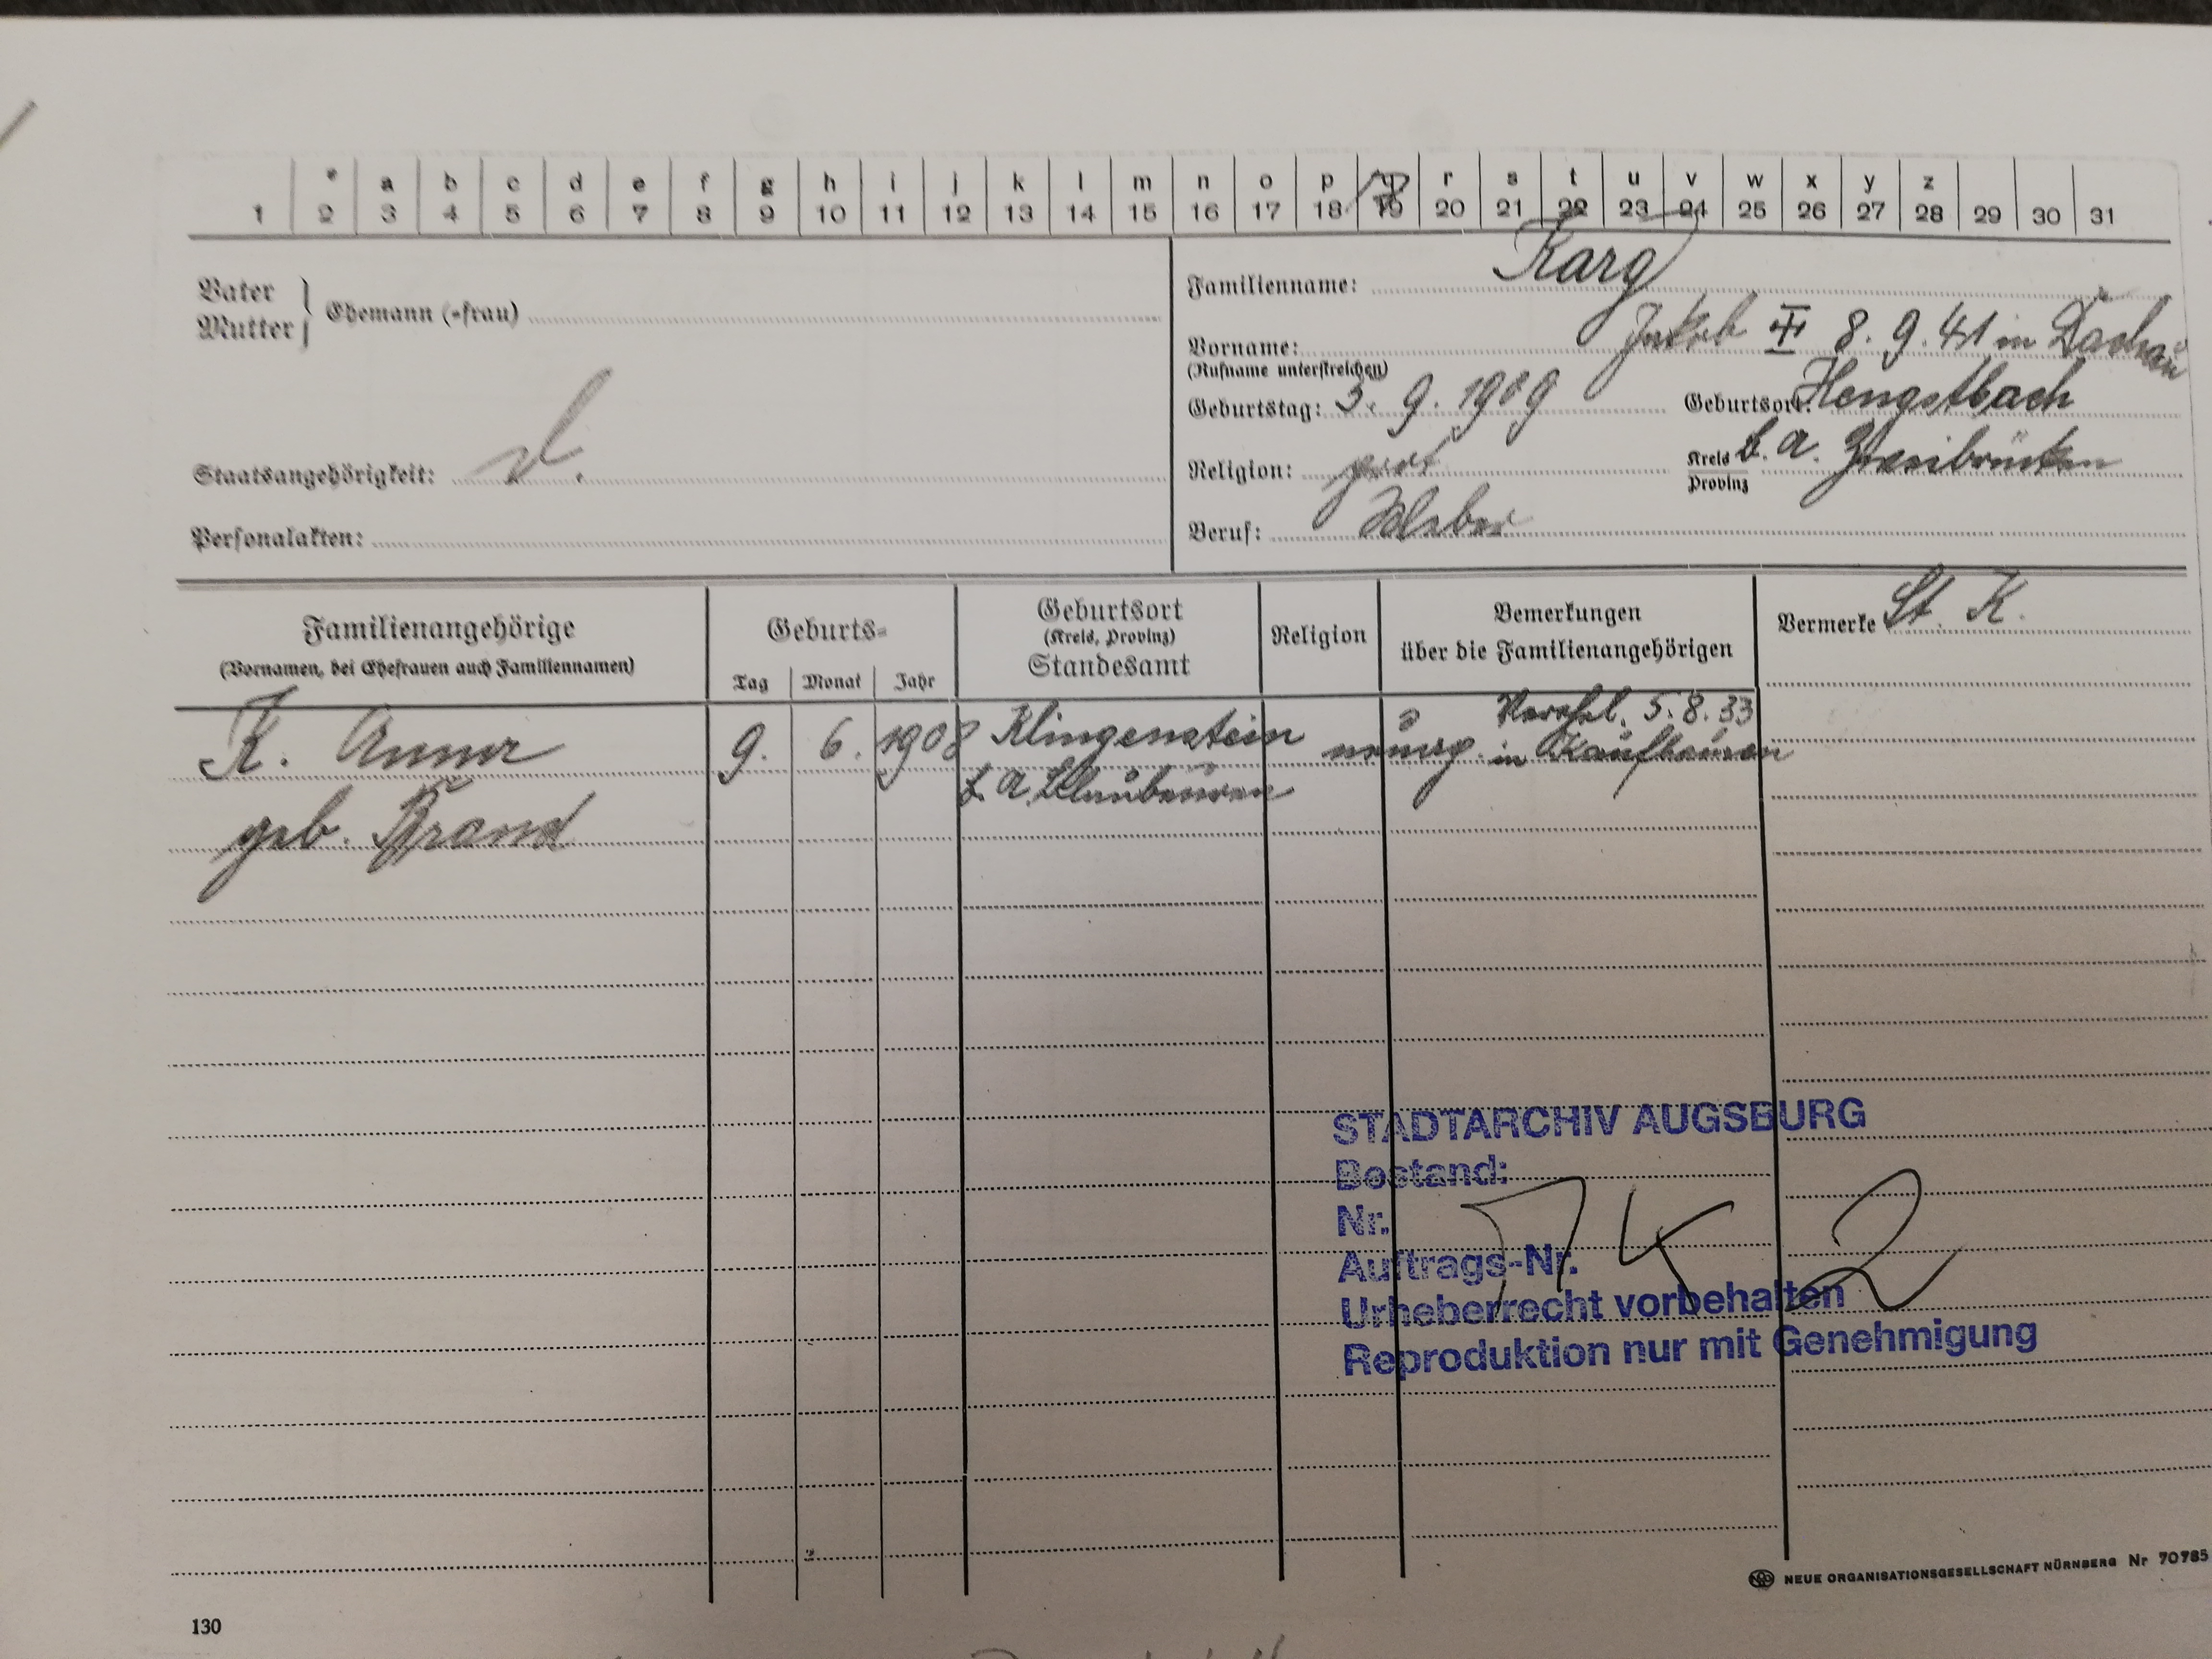 * a b c d e f g h i j k l m n o p q r s t u v w x y z
1 2 3 4 5 6 7 8 9 10 11 12 13 14 15 16 17 18 19 20 21 22 23 24 25 26 27 28 29 30 31
Vater
Mutter } Ehemann (=frau)
Staatsangehörigkeit: d.
Personalakten:
Familienname: Karg
Vorname: Jakob 8. 9. 41 in Dachau
(Rufname unterstreichen)
Geburtstag: 3. 9. 1909 Geburtsort: Hengstbach
Religion: prot Kreis B. A. Zweibrücken
Provinz
Beruf: Weber
Familienangehörige
(Vornamen, bei Ehefrauen auch Familiennamen)
Geburts=
Tag Monat Jahr
Geburtsort
(Kreis, Provinz)
Standesamt
Religion
Bemerkungen
über die Familienangehörigen
Vermerke St. K.
K. Anna 9. 6. 1908 Klingenstein Verehel. 5. 8. 33
in Kaufbeuren
geb. Brand B. A. Blaubeuren
STADTARCHIV AUGSBURG
Bestand:
Nr.
Auftrags-Nr.
Urheberrecht vorbehalten
Reproduktion nur mit Genehmigung
NEUE ORGANISATIONSGESELLSCHAFT NÜRNBERG Nr 70785
130